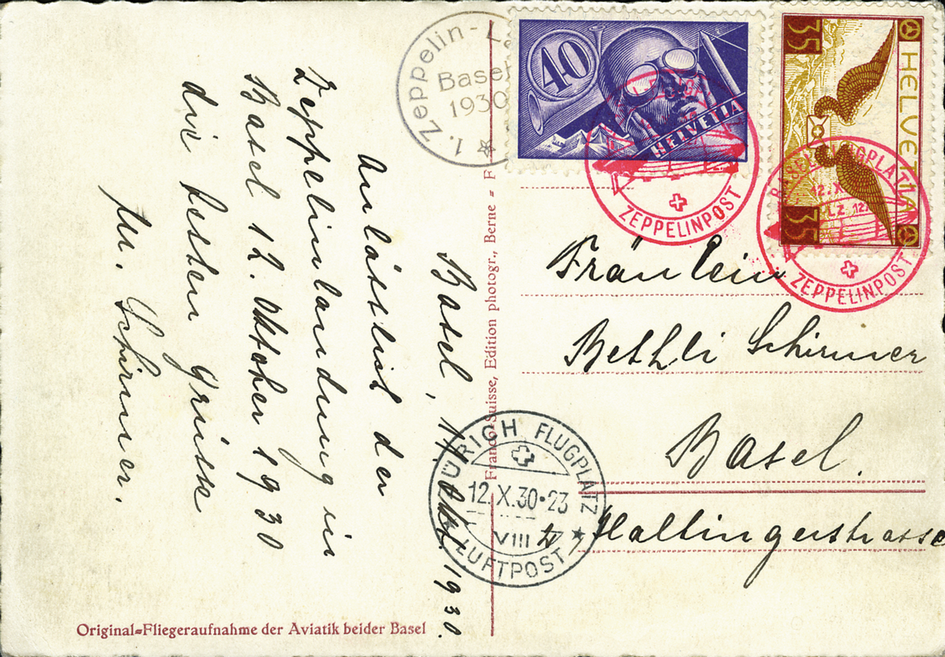 1. Zeppelin-L
Basel
1930
40
HELVETIA
35
HELVETIA
35
BASEL FLUGPLATZ
12.X
LZ 127
ZEPPELINPOST
ZEPPELINPOST
Basel, 11. Okt. 1930.
Anlässlich der
Zeppelinlandung in
Basel 12. Oktober 1930
die besten Grüsse
M. Schirmer.
Fräulein
Bethli Schirmer
Basel.
Haltingerstrasse
ZÜRICH FLUGPLATZ
12.X.30·23
VIII
LUFTPOST
Franco-Suisse, Edition photogr., Berne =
Original=Fliegeraufnahme der Aviatik beider Basel